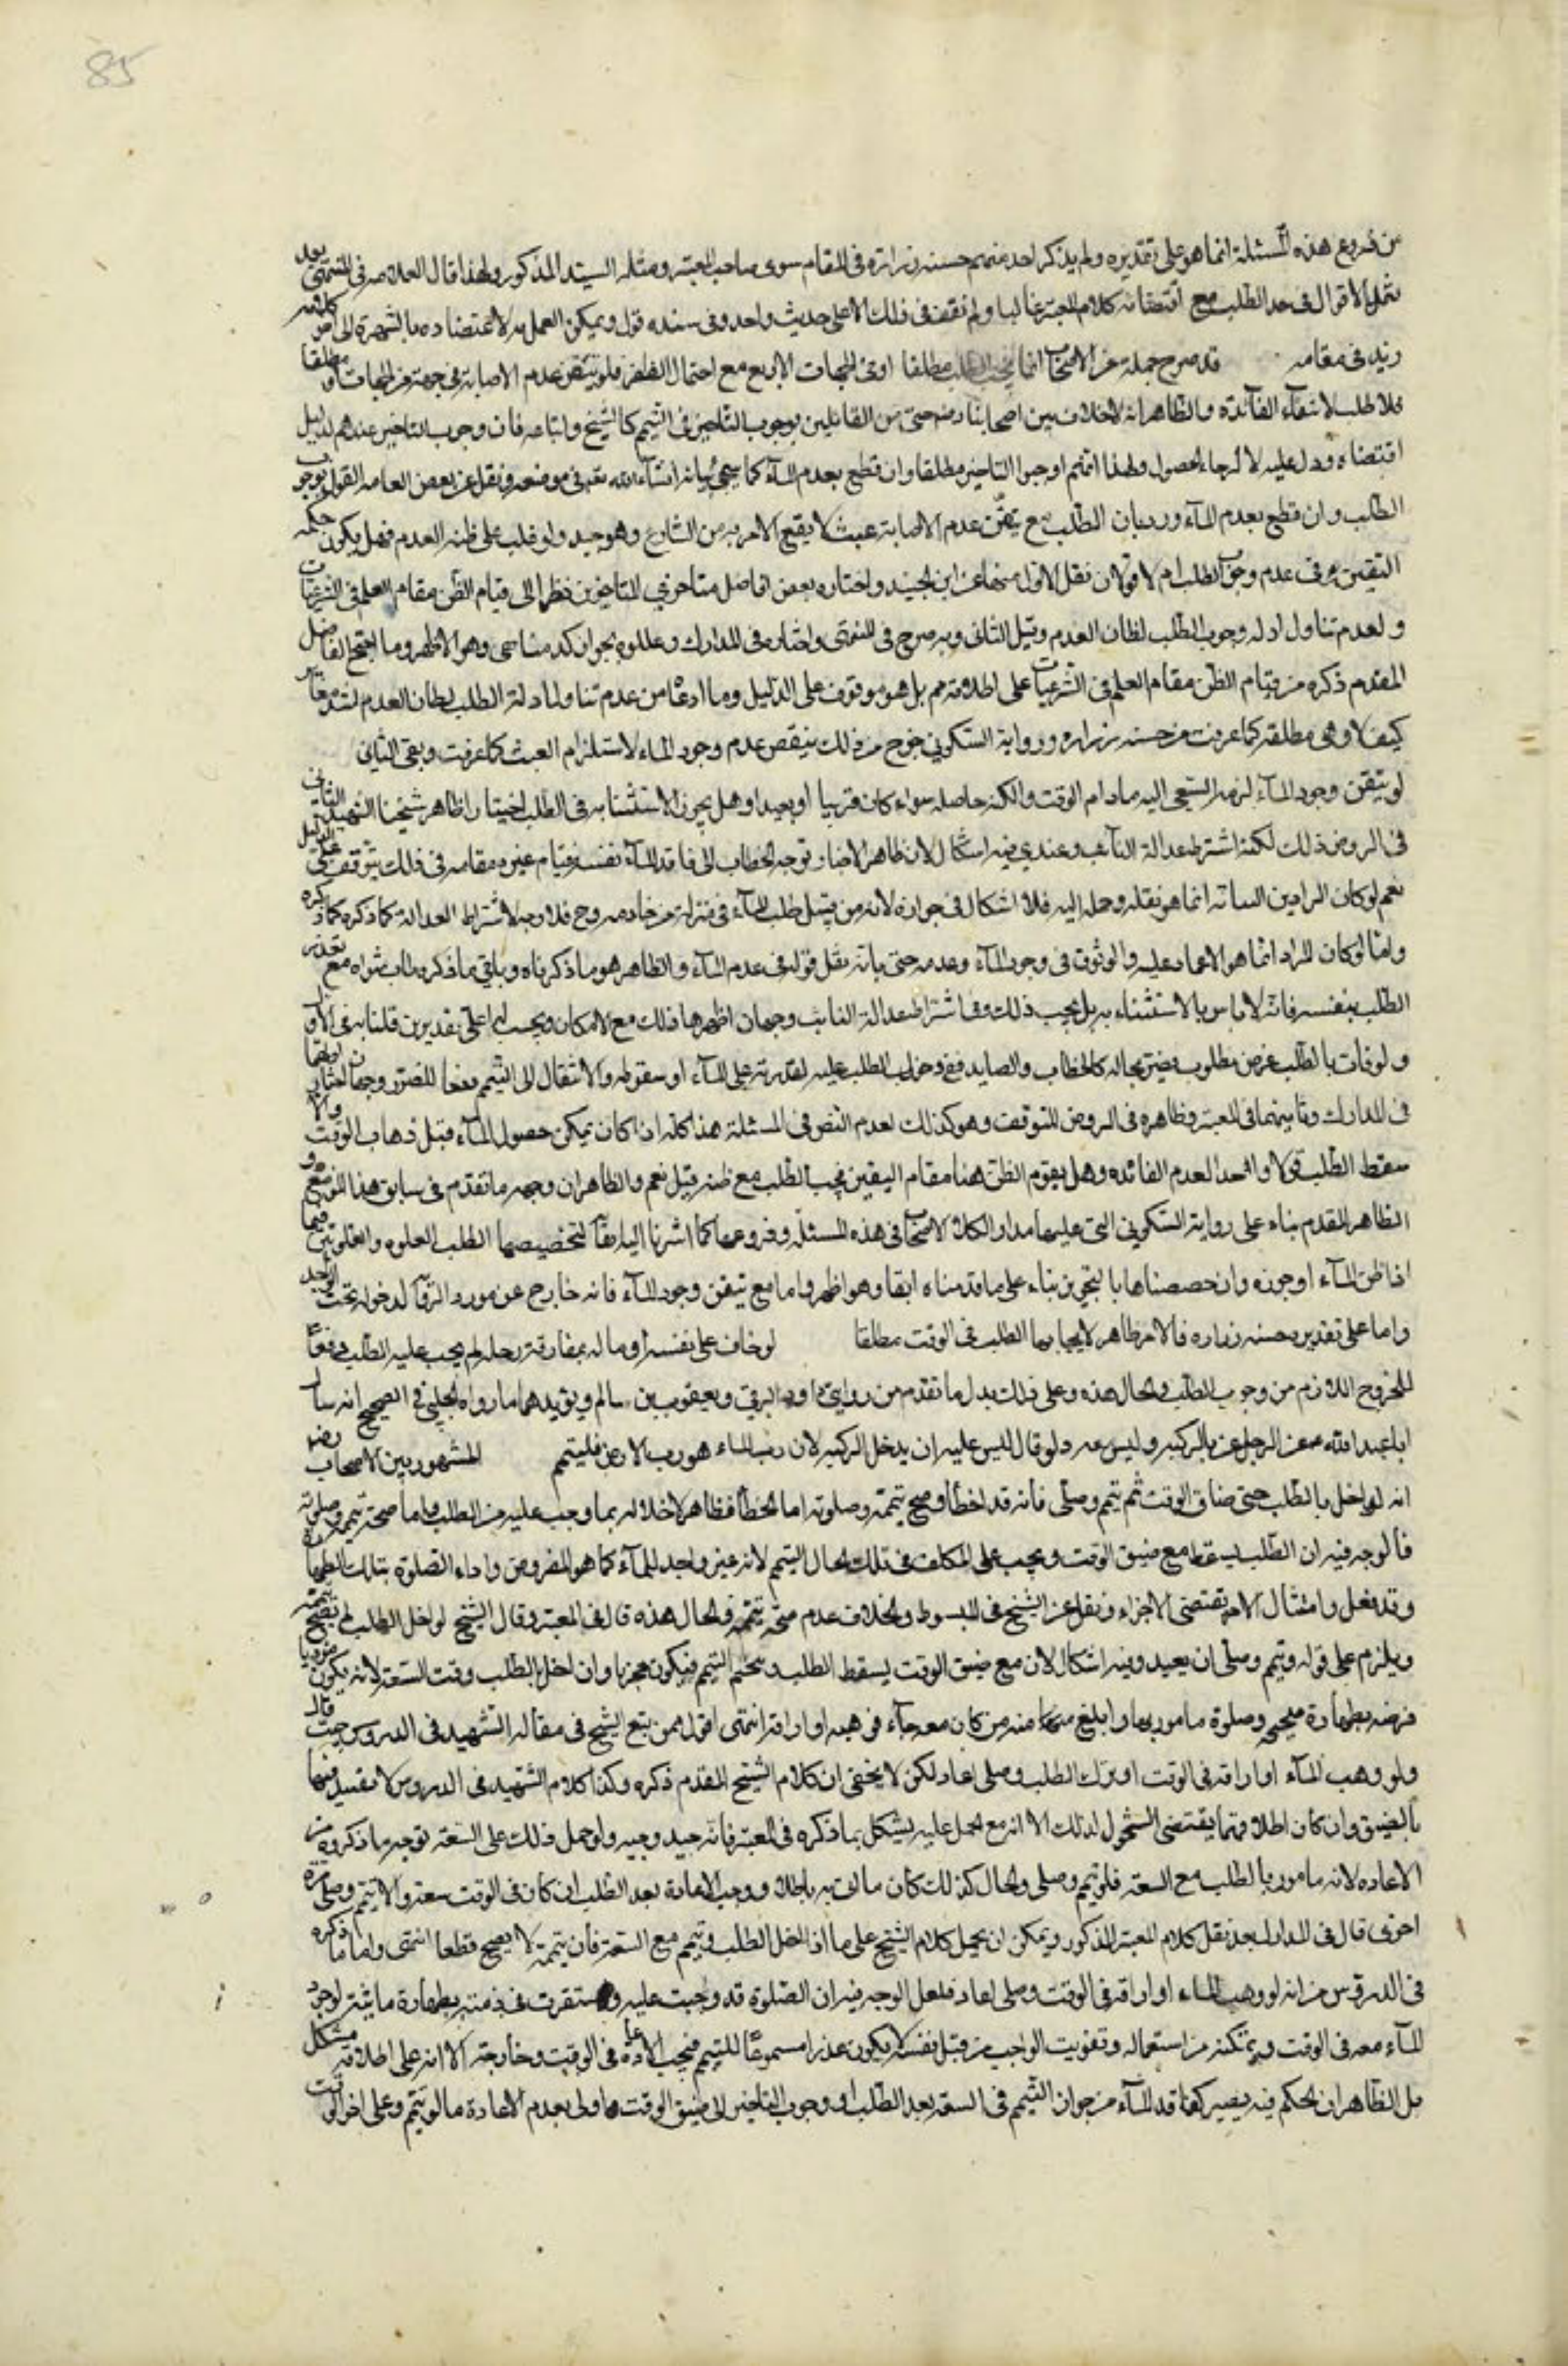 85
من فروع هذه المسئلة انما هو على تقديره ولم يذكر احد منهم حسنه زرارة فى المقام سوى صاحب المعتبر ومثله السيد المذكور ولهذا قال العلامه فى المنتهى بعد
نقل الاقوال فى حد الطلب مع اقتضائه كلام المعتبر غالبا ولم نقف فى ذلك الا على حديث واحد وفى سنده قول ويمكن العمل به لاعتضاده بالشهرة الى اخر كلامه
زيد فى مقامه قد صرح جملة من الاصحاب انما يجب الطلب مطلقا او فى الجهات الاربع مع احتمال الظفر فلو تيقن عدم الاصابة فى جهة من الجهات او مطلقا
فلا طلب لانتفاء الفائدة والظاهر انه لا خلاف بين اصحابنا رض حتى من القائلين بوجوب التاخير فى التيمم كالشيخ واتباعه فان وجوب التاخير عندهم لدليل
اقتضاه ودل عليه لا لرجاء الحصول ولهذا انهم اوجبوا التاخير مطلقا وان قطع بعدم الماء كما سيجئ بيانه انشاء الله تعه فى موضعه ونقل عن بعض العامه القول بوجوب
الطلب وان قطع بعدم الماء ورد بان الطلب مع تيقن عدم الاصابة عبث لا يقع الامر به من الشارع وهو جيد ولو غلب على ظنه العدم فهل يكون حكمه
التيقن فى عدم وجوب الطلب ام لا قولان نقل الاول منهما عن ابن الجنيد واختاره بعض افاضل متاخرى المتاخرين نظرا الى قيام الظن مقام العلم فى الشرعيات
ولعدم تناول ادله وجوب الطلب لظان العدم وقيل الثانى وبه صرح فى المنتهى واختاره فى المدارك وعللوه بجواز كذب ظنه وهو الاظهر وما احتج الفاضل
المقدم ذكره من قيام الظن مقام العلم فى الشرعيات على اطلاقه مم بل هو موقوف على الدليل وما ادعاه من عدم تناول ادلة الطلب لظان العدم
كيف لا وهى مطلقة كما عرفت من حسنه زراره ورواية السكونى خرج من ذلك تيقن عدم وجود الماء لاستلزام العبث كما عرفت وبقى الثانى
لو تيقن وجود الماء لزمه السعى اليه مادام الوقت والمكنه حاصله سواء كان قريبا او بعيدا وهل يجوز الاستنابه فى الطلب اختيارا ظاهر شيخنا الشهيد الثانى
فى الروض ذلك لكنه اشترط عدالة النائب وعندى فيه اشكال لان ظاهر الاخبار توجه الخطاب الى فاقد الماء نفسه فقيام غيره مقامه فى ذلك يتوقف على الدليل
نعم لو كان المراد من النيابة انما هو نقله وحمله اليه فلا اشكال فى جوازه لانه من قبيل طلب الماء فى منزله من خادمه وح فلا وجه لاشتراط العدالة كما ذكره
واما لو كان المراد انما هو الاعتماد عليه والوثوق فى وجود الماء وعدمه حتى بانه يقبل قوله فى عدم الماء والظاهر هو ما ذكرناه وباقى ما ذكره مع تعذر
الطلب بنفسه فانه لا باس بالاستنابه بل يجب ذلك وفى اشتراط عدالة النائب وجهان اظهرها ذلك مع الامكان
ولو فات بالطلب غرض مطلوب يضر بحاله كالحطاب والصايد ففى وجوب الطلب عليه لقدرته على الماء او سقوطه والانتقال الى التيمم دفعا للضرر وجهان اولهما
فى المدارك وثانيهما فى المعتبر وظاهره فى الروض التوقف وهو كذلك لعدم النص فى المسئلة هذا كله اذا كان يمكن حصول الماء قبل ذهاب الوقت والا
سقط الطلب قولا واحدا لعدم الفائده وهل يقوم الظن هنا مقام اليقين فيجب الطلب مع ظنه قيل نعم والظاهر ان وجهه ما تقدم فى سابق هذا الموضع
الظاهر المقدم بناء على رواية السكونى التى عليها مدار الكلام الاصحاب فى هذه المسئلة وفروعها كما اشرنا اليه انفا لتخصيصها الطلب الغلوه والغلوتين فيما
اذا ظن الماء او جوزه وان خصصناها بالتجويز بناء على ما قدمناه ايضا وهو اظهر واما مع تيقن وجود الماء فانه خارج عن مورد الرواية لدخوله تحت الواجد
واما على تقدير حسنه زراره فالامر ظاهر لايجابها الطلب فى الوقت مطلقا لو خاف على نفسه او ماله بمفارقة رحله لم يجب عليه الطلب دفعا
للحرج اللازم من وجوب الطلب والحال هذه وعلى ذلك يدل ما تقدم من روايتى داود البرقى ويعقوب بن سالم ويؤيدهما ما رواه الحلبى فى الصحيح انه سال
ابا عبدالله عن الرجل يمر بالركيه وليس معه دلو قال ليس عليه ان يدخل الركيه لان رب الماء هو رب الارض فليتمم المشهور بين الاصحاب رض
انه لو اخل بالطلب حتى ضاق الوقت ثم تيمم وصلى فانه قد اخطأ وصح تيممه وصلوته اما الخطأ فظاهر لاخلاله بما وجب عليه من الطلب واما صحة تيممه وصلوته
فالوجه فيه ان الطلب يسقط مع ضيق الوقت ويجب على المكلف فى تلك الحال التيمم لانه غير واجد للماء كما هو المفروض واداء الصلوة بتلك الطهارة
وقد فعل وامتثال الامر يقتضى الاجزاء ونقل عن الشيخ فى المبسوط والخلاف عدم صحة تيممه والحال هذه قال فى المعتبر وقال الشيخ لو اخل بالطلب لم يصح تيممه
ويلزم على قوله لو تيمم وصلى ان يعيد وفيه اشكال لان مع ضيق الوقت يسقط الطلب ويتحتم التيمم فيكون مجزيا وان اخل بالطلب وقت السعة لانه يكون مؤديا
فرضه بطهارة صحيحه وصلوة مامور بها وابلغ منه من كان معه ماء فوهبه او اراقه انتهى اقول وممن تبع الشيخ فى مقاله الشهيد فى الدروس حيث قال
ولو وهب الماء او اراقه فى الوقت او ترك الطلب وصلى اعاد لكن لا يخفى ان كلام الشيخ المقدم ذكره وكذا كلام الشهيد فى الدروس لا تقييد فيهما
بالضيق وان كان اطلاقهما يقتضى الشمول لذلك الا انه مع الحمل عليه يشكل بما ذكره فى المعتبر فانه جيد وجيه ولو حمل ذلك على السعة توجه ما ذكروه من
الاعاده لانه مامور بالطلب مع السعة فلو تيمم وصلى والحال كذلك كان ما اتى به باطلا ووجب الاعادة بعد الطلب ان كان فى الوقت سعة والا تيمم وصلى مرة
اخرى قال فى المدارك بعد نقل كلام المعتبر المذكور ويمكن ان يحمل كلام الشيخ على ما اذا اخل بالطلب وتيمم مع السعة فان تيممه لا يصح قطعا انتهى واما ما ذكره
فى الدروس من انه لو وهب الماء او اراقه فى الوقت وصلى اعاد فلعل الوجه فيه ان الصلوة قد وجبت عليه واستقرت فى ذمته بطهارة مائية لوجود
الماء معه فى الوقت وتمكنه من استعماله وتفويت الواجب من قبل نفسه لا يكون عذرا مسموعا للتيمم فيجب الاعادة فى الوقت وخارجه الا انه على اطلاقه مشكل
بل الظاهر ان الحكم فيه يصير كفاقد الماء من جواز التيمم فى السعة بعد الطلب او وجوب التاخير الى ضيق الوقت واولى بعدم الاعادة ما لو تيمم وصلى اخر الوقت